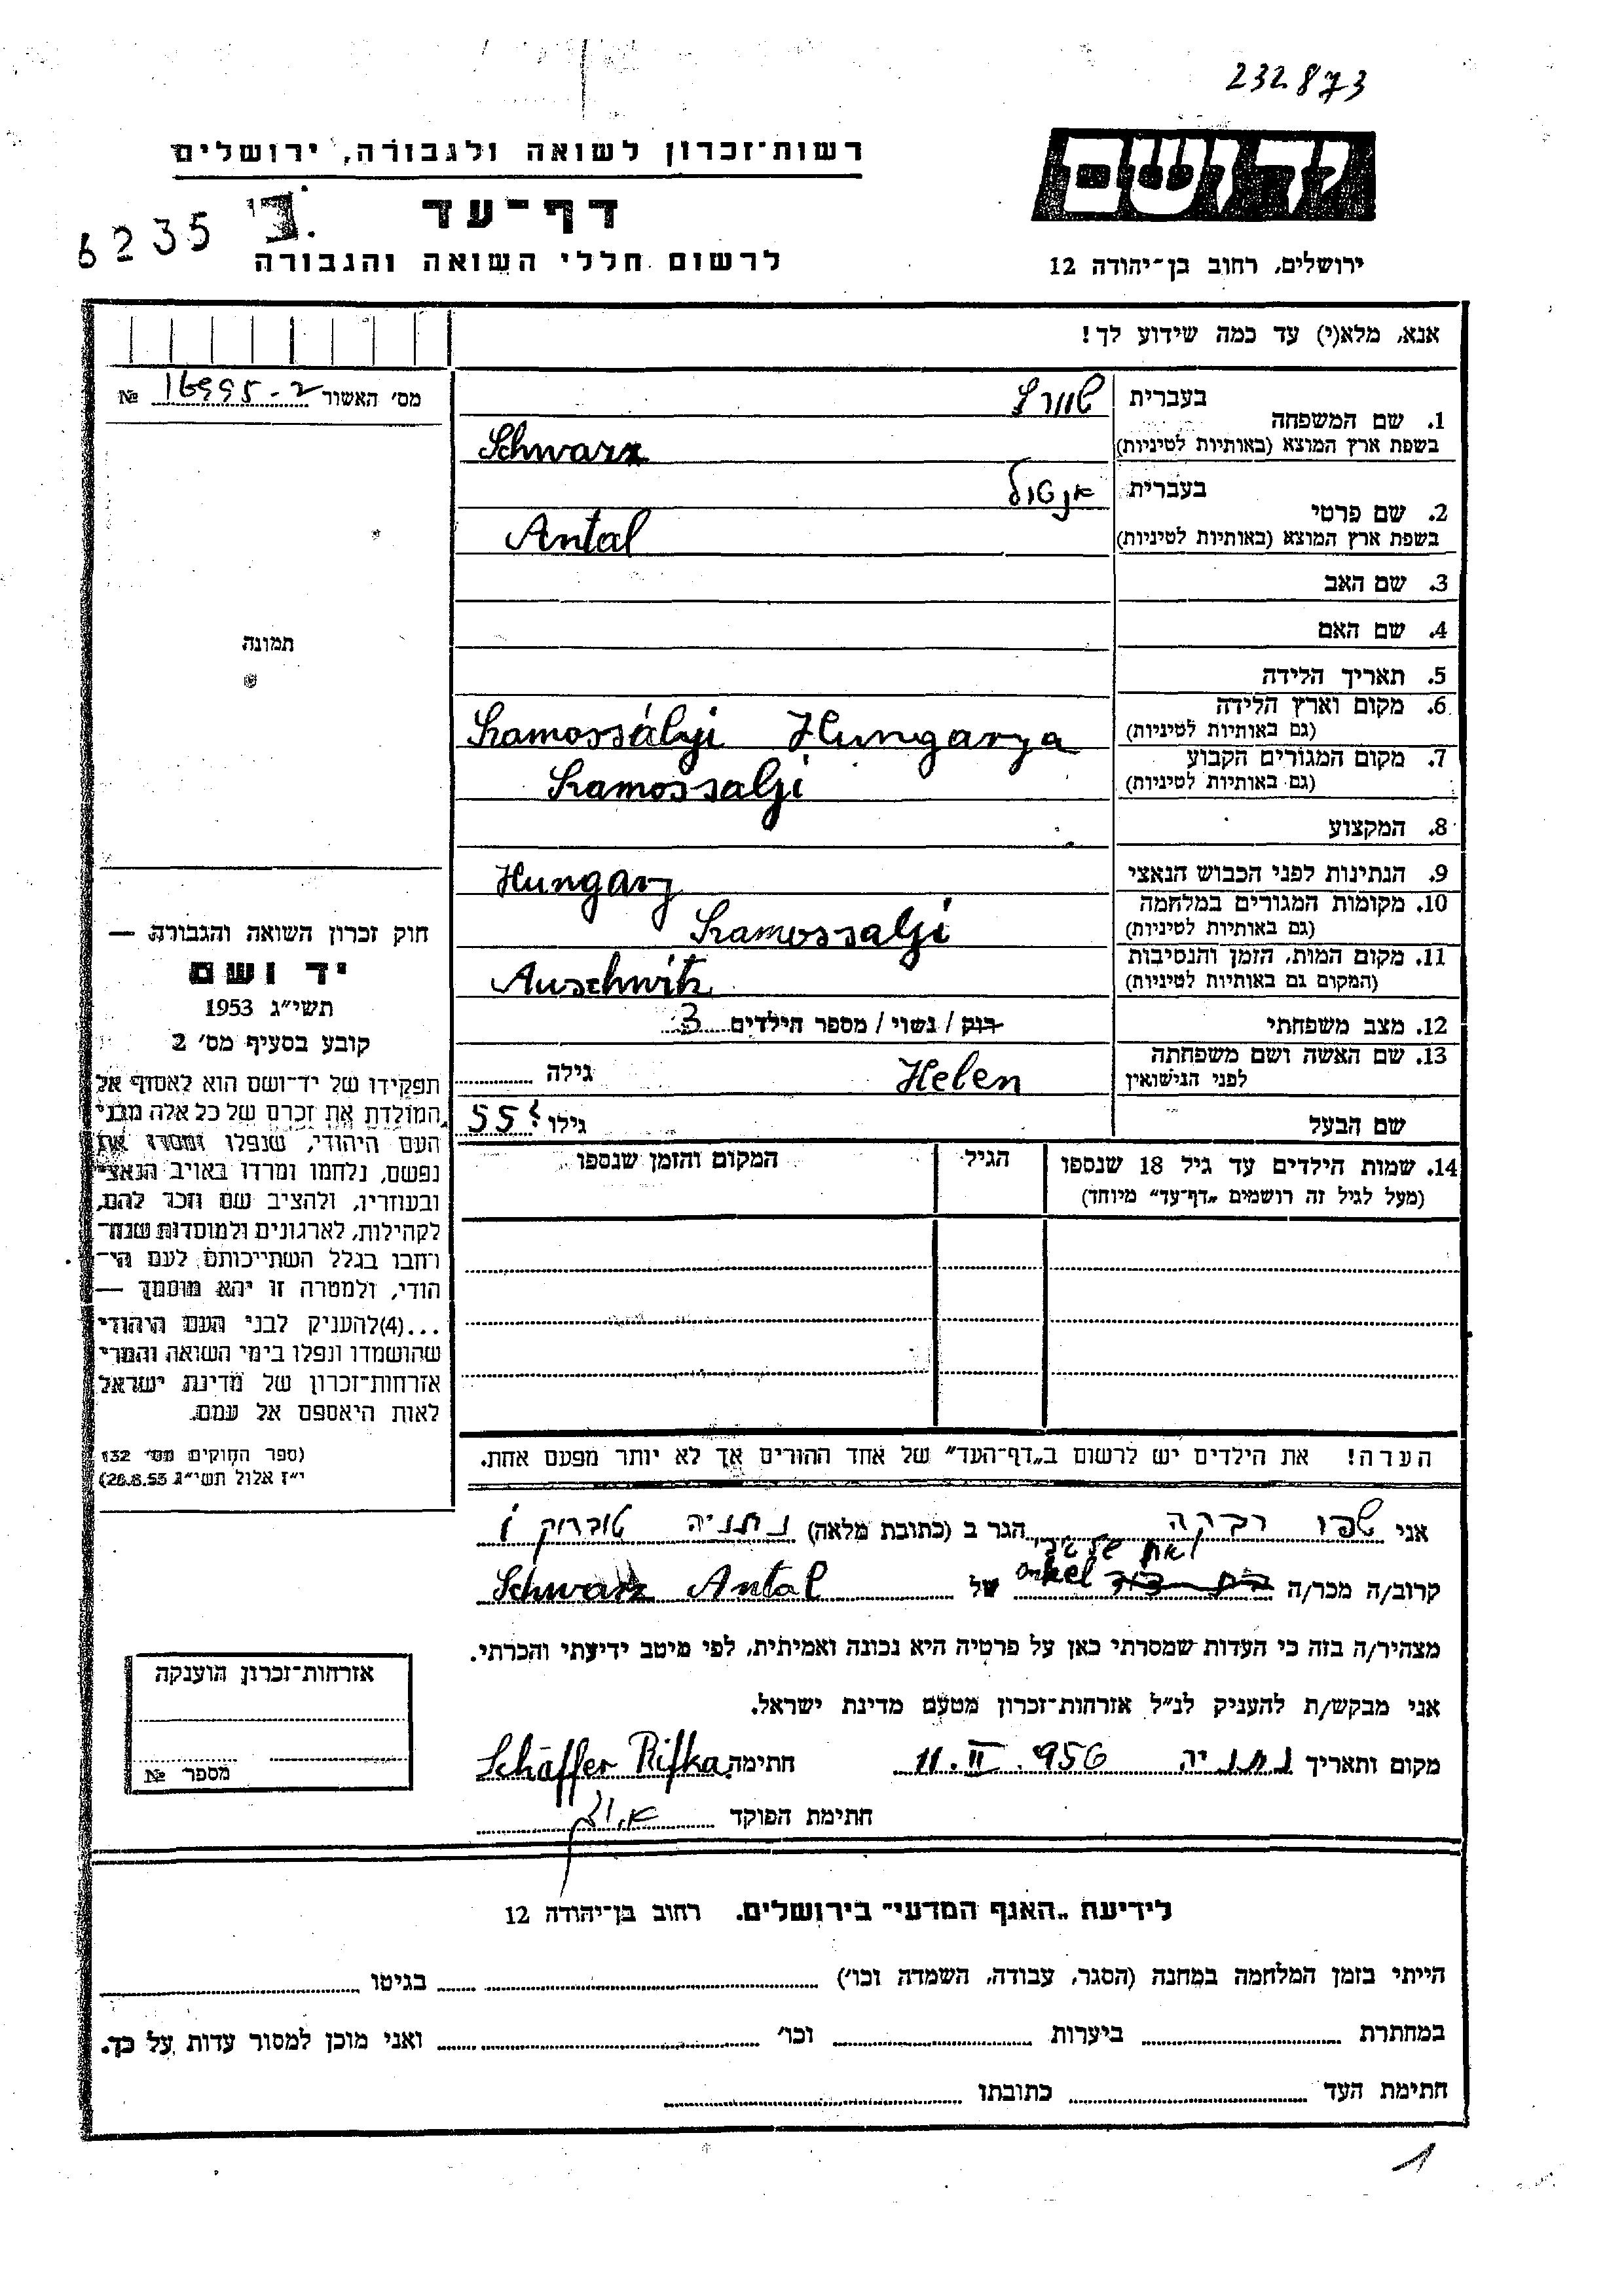 232873
יד ושם
רשות־זכרון לשואה ולגבורה, ירושלים
דף־עד
6235
לרשום חללי השואה והגבורה
ירושלים, רחוב בן־יהודה 12
אנא, מלא(י) עד כמה שידוע לך!
מס׳ האשור 16995-2 №
1. שם המשפחה
בעברית שוורץ
בשפת ארץ המוצא (באותיות לטיניות) Schwarz
2. שם פרטי
בעברית אנטול
בשפת ארץ המוצא (באותיות לטיניות) Antal
3. שם האב
4. שם האם
תמונה
5. תאריך הלידה
6. מקום וארץ הלידה
(גם באותיות לטיניות) Szamossályi Hungarya
7. מקום המגורים הקבוע
(גם באותיות לטיניות) Szamossalyi
8. המקצוע
9. הנתינות לפני הכבוש הנאצי Hungary
10. מקומות המגורים במלחמה
(גם באותיות לטיניות) Szamossalyi
11. מקום המות, הזמן והנסיבות
(המקום גם באותיות לטיניות) Auschwitz
12. מצב משפחתי רוק / נשוי / מספר הילדים 3
13. שם האשה ושם משפחתה
לפני הנישואין Helen גילה
שם הבעל גילו 55
14. שמות הילדים עד גיל 18 שנספו
(מעל לגיל זה רושמים „דף־עד״ מיוחד)
הגיל
המקום והזמן שנספו
חוק זכרון השואה והגבורה —
יד ושם
תשי״ג 1953
קובע בסעיף מס׳ 2
תפקידו של יד־ושם הוא לאסוף אל
המולדת את זכרם של כל אלה מבני
העם היהודי, שנפלו ומסרו את
נפשם, נלחמו ומרדו באויב הנאצי
ובעוזריו, ולהציב שם וזכר להם,
לקהילות, לארגונים ולמוסדות שנח־
רחבו בגלל השתייכותם לעם הי־
הודי, ולמטרה זו יהא מוסמך —
...(4)להעניק לבני העם היהודי
שהושמדו ונפלו בימי השואה והמרי
אזרחות־זכרון של מדינת ישראל
לאות היאספם אל עמם.
(ספר החוקים מס׳ 132
י״ז אלול תשי״ג 28.8.53)
הערה! את הילדים יש לרשום ב„דף־העד״ של אחד ההורים אך לא יותר מפעם אחת.
אני רבקה הגר ב (כתובת מלאה) נתניה
קרוב/ה מכר/ה onkel של Schwarz Antal
מצהיר/ה בזה כי העדות שמסרתי כאן על פרטיה היא נכונה ואמיתית, לפי מיטב ידיעתי והכרתי.
אני מבקש/ת להעניק לנ״ל אזרחות־זכרון מטעם מדינת ישראל.
מקום ותאריך נתניה 11.II.956 חתימה Schäffer Rifka
חתימת הפוקד
אזרחות־זכרון הוענקה
מספר №
לידיעת „האגף המדעי״ בירושלים. רחוב בן־יהודה 12
הייתי בזמן המלחמה במחנה (הסגר, עבודה, השמדה וכו׳) בגיטו
במחתרת ביערות וכו׳ ואני מוכן למסור עדות על כך.
חתימת העד כתובתו
1